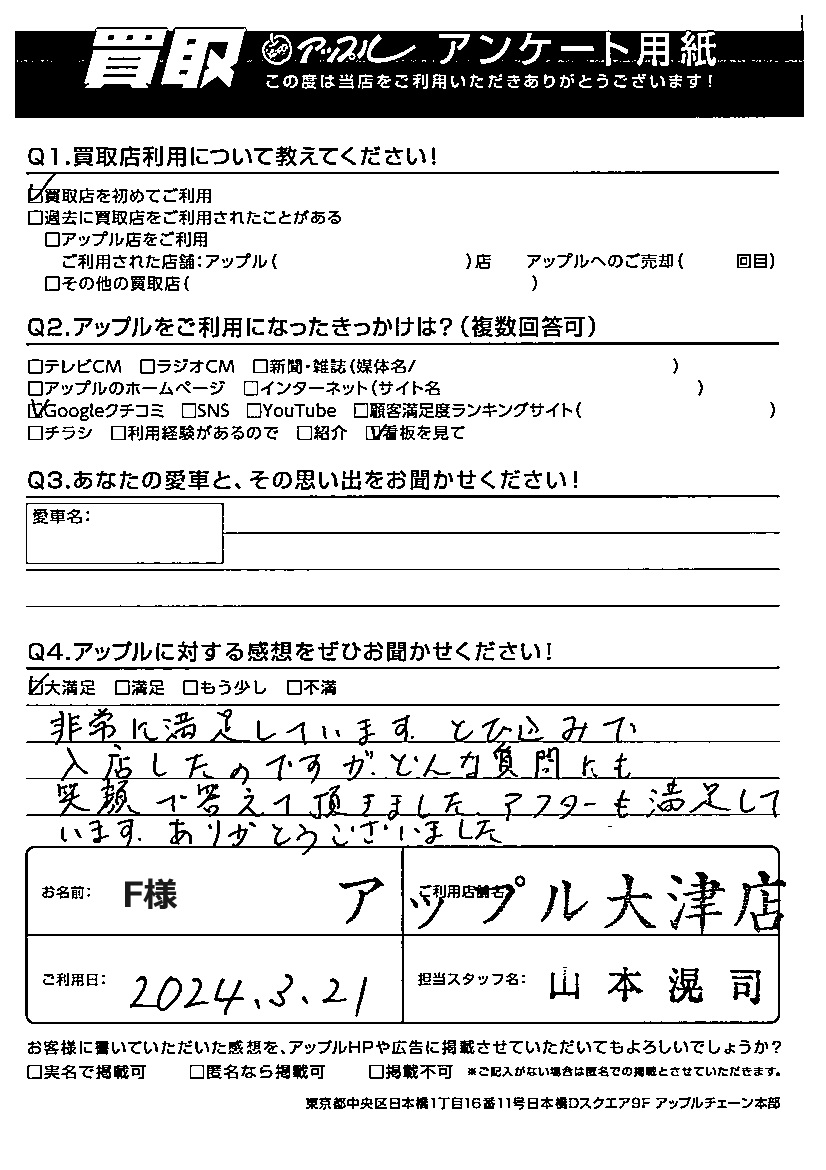 買取 アップル アンケート用紙
この度は当店をご利用いただきありがとうございます!
Q1.買取店利用について教えてください!
☑買取店を初めてご利用
□過去に買取店をご利用されたことがある
□アップル店をご利用
ご利用された店舗:アップル( )店 アップルへのご売却( 回目)
□その他の買取店( )
Q2.アップルをご利用になったきっかけは?(複数回答可)
□テレビCM □ラジオCM □新聞・雑誌(媒体名/ )
□アップルのホームページ □インターネット(サイト名 )
☑Googleクチコミ □SNS □YouTube □顧客満足度ランキングサイト( )
□チラシ □利用経験があるので □紹介 ☑看板を見て
Q3.あなたの愛車と、その思い出をお聞かせください!
愛車名:
Q4.アップルに対する感想をぜひお聞かせください!
☑大満足 □満足 □もう少し □不満
非常に満足しています。とび込みで
入店したのですが、どんな質問にも
笑顔で答えて頂きました。アフターも満足して
います。ありがとうございました
お名前: F様 ご利用店舗名: アップル大津店
ご利用日: 2024.3.21 担当スタッフ名: 山本滉司
お客様に書いていただいた感想を、アップルHPや広告に掲載させていただいてもよろしいでしょうか?
□実名で掲載可 □匿名なら掲載可 □掲載不可 ※ご記入がない場合は匿名での掲載とさせていただきます。
東京都中央区日本橋1丁目16番11号日本橋Dスクエア9F アップルチェーン本部